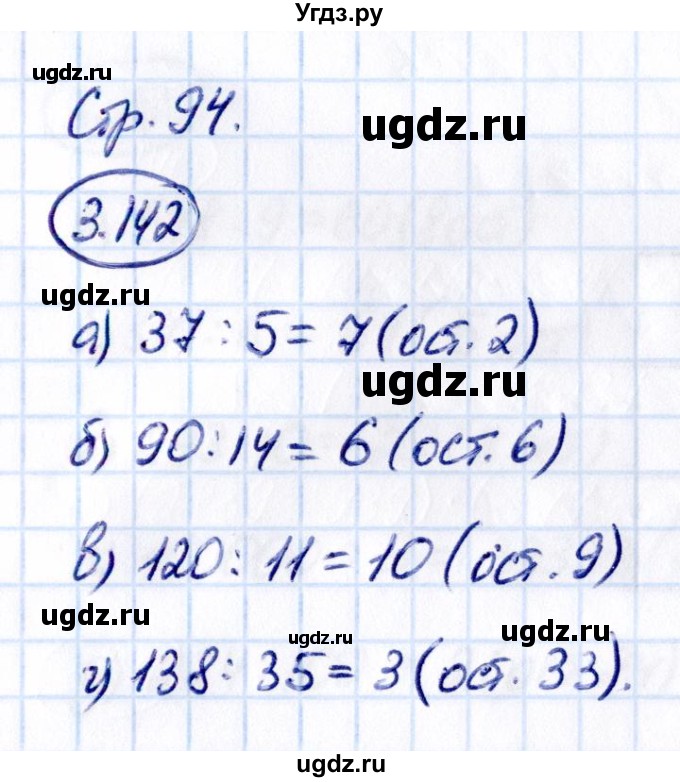 Угдз.ру
ugdz.ru
Стр. 94.
ugdz.ru
3.142
ugdz.ru
а) 37 : 5 = 7 (ост. 2)
ugdz.ru
б) 90 : 14 = 6 (ост. 6)
в) 120 : 11 = 10 (ост. 9)
ugdz.ru
ugdz.ru
ugdz.ru
г) 138 : 35 = 3 (ост. 33).
ugdz.ru